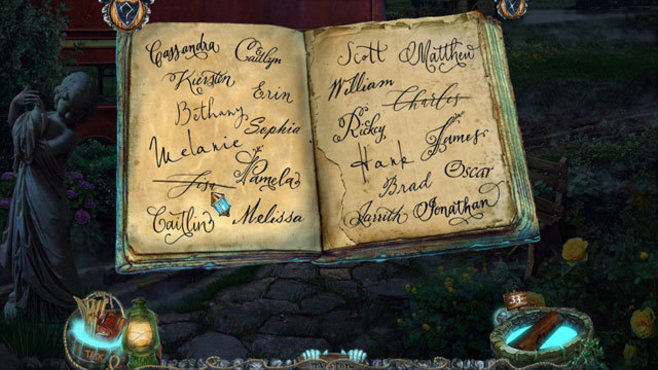 Cassandra Caitlyn
Kiersten Erin
Bethany Sophia
Melanie
Lisa Pamela
Caitlin Melissa
Scott Matthew
William Charles
Rickey James
Hank Oscar
Brad
Jarrith Jonathan
33